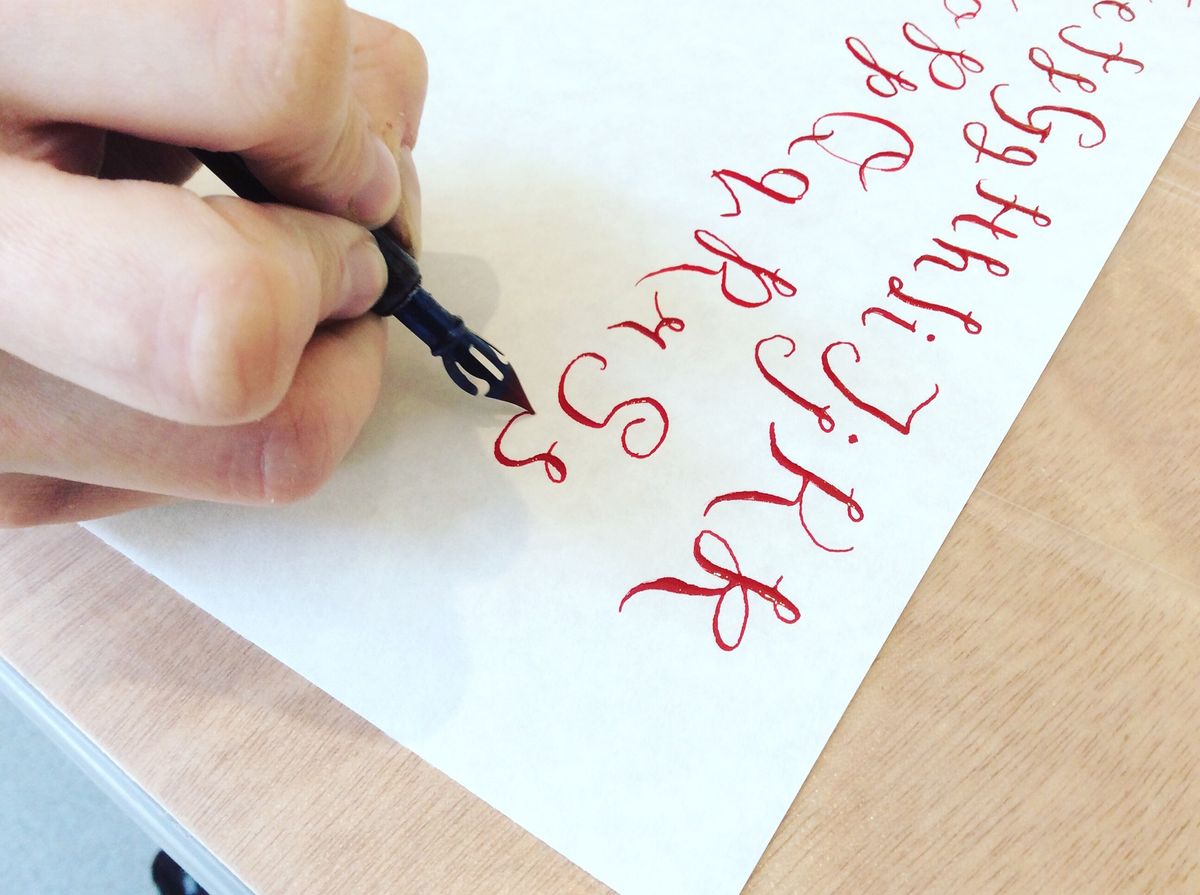 e F f G g H h I i J j K k
o P p Q q R r S s